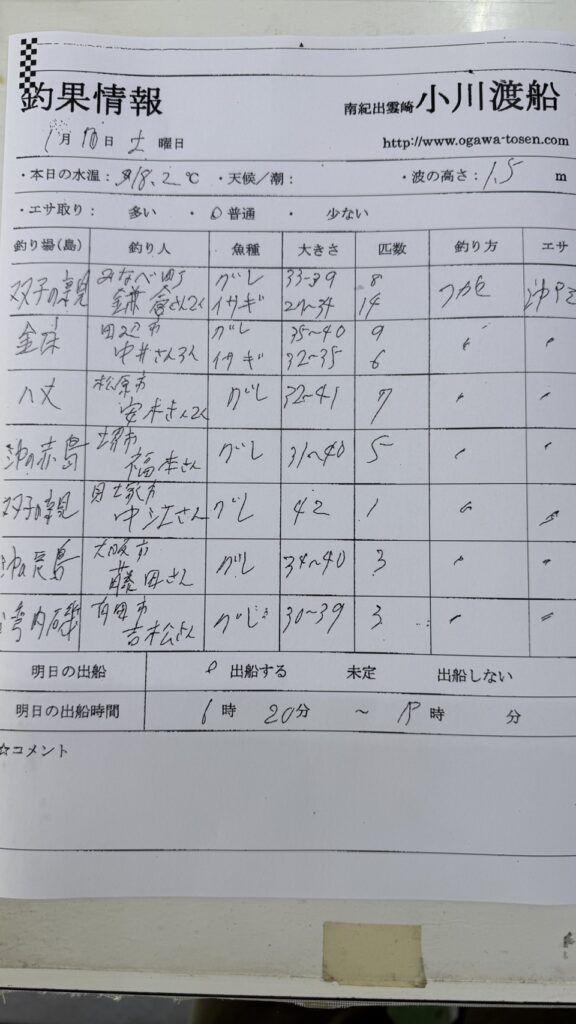 釣果情報
南紀出雲崎 小川渡船
1月10日 土 曜日
http://www.ogawa-tosen.com
・本日の水温: 18.2 ℃ ・天候/潮: ・波の高さ: 1.5 m
・エサ取り: 多い ・ 普通 ・ 少ない
釣り場(島) 釣り人 魚種 大きさ 匹数 釣り方 エサ
双子の親 みなべ町 グレ 33~39 8 フカセ
鎌倉さん2人 イサギ 27~34 14
金床 田辺市 グレ 35~40 9 〃 〃
中井さん3人 イサギ 32~35 6
八丈 松原市 グレ 32~41 7 〃 〃
安木さん2人
沖の赤島 堺市 グレ 31~40 5 〃 〃
福本さん
双子の親 貝塚市 グレ 42 1 〃 〃
中江さん
沖の長島 大阪市 グレ 34~40 3 〃 〃
藤田さん
湾内磯 有田市 グレ 30~39 3 〃 〃
吉松さん
明日の出船 出船する 未定 出船しない
明日の出船時間 6時 20分 ~ 時 分
☆コメント